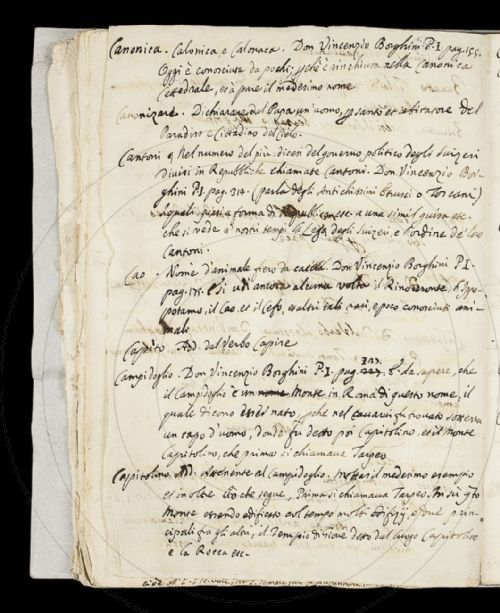 Canonica. Calonica, e Calonaca. Don Vincenzio Borghini P. I. pag. 155.
Oggi è conosciuta da pochi, pchè è rinchiusa nella Canonica
Cattedrale, erà pure il medesimo nome
Canonizare. Dichiarare dal Papa un'uomo, p santo et abitatore del
Paradiso e Cittadino del Cielo.
Cantoni Nel numero del più. dicesi del governo politico degli Suizeri
divisi in Republiche chiamate Cantoni. Don Vincenzio Bor-
ghini P.I. pag. 314. (parla degli Antichissimi Etrusci o Toscani)
a quali questa forma di Republica etc. a una simil guisa etc.
che si vede a' nostri tempi la Lega degli Suizeri, e l'ordine de' loro
Cantoni.
Cao. Nome d'animale fiero da caccia. Don Vincenzio Borghini P. I.
pag. 175. E si vedi ancora alcuna volta il Rinoceronte, l'Ippo-
potamo, il Cao, et il Cefo, et altri tali rari, e poco conosciuti ani-
mali
Capito. Add. dal Verbo Capire
Campidoglio. Don Vincenzio Borghini P. I. pag. È da sapere, che
il Campidoglio è un Monte in Roma di questo nome, il
quale dicono esser nato, pchè nel cavarvi fu trovato sotterra
un capo d'uomo, donde fu detto poi Capitolino, et il Monte
Capitolino, che prima si chiamava Tarpeo.
Capitolino. Ad. Attenente al Campidoglio. il medesimo esempio
et inoltre che segue, Prima si chiamava Tarpeo. In su qto
Monte essendo edificato col tempo molti edifizij, e due prin-
cipali fra gli altri, il Tempio di Giove detto dal luogo Capitolino
e la Rocca etc.